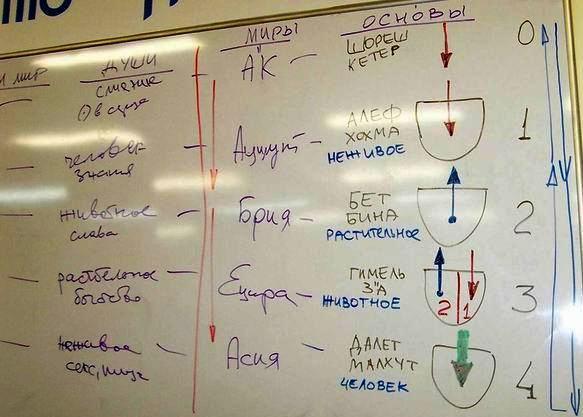 МИР ДУШИ МИРЫ ОСНОВЫ
слияние АК ШОРЕШ 0
КЕТЕР
человек Ацилут АЛЕФ 1
знания ХОХМА
НЕЖИВОЕ
животное Брия БЕТ 2
слава БИНА
РАСТИТЕЛЬНОЕ
богатство Ецира ГИМЕЛЬ 2 1 3
З"А
ЖИВОТНОЕ
неживое Асия ДАЛЕТ 4
секс, пища МАЛХУТ
ЧЕЛОВЕК